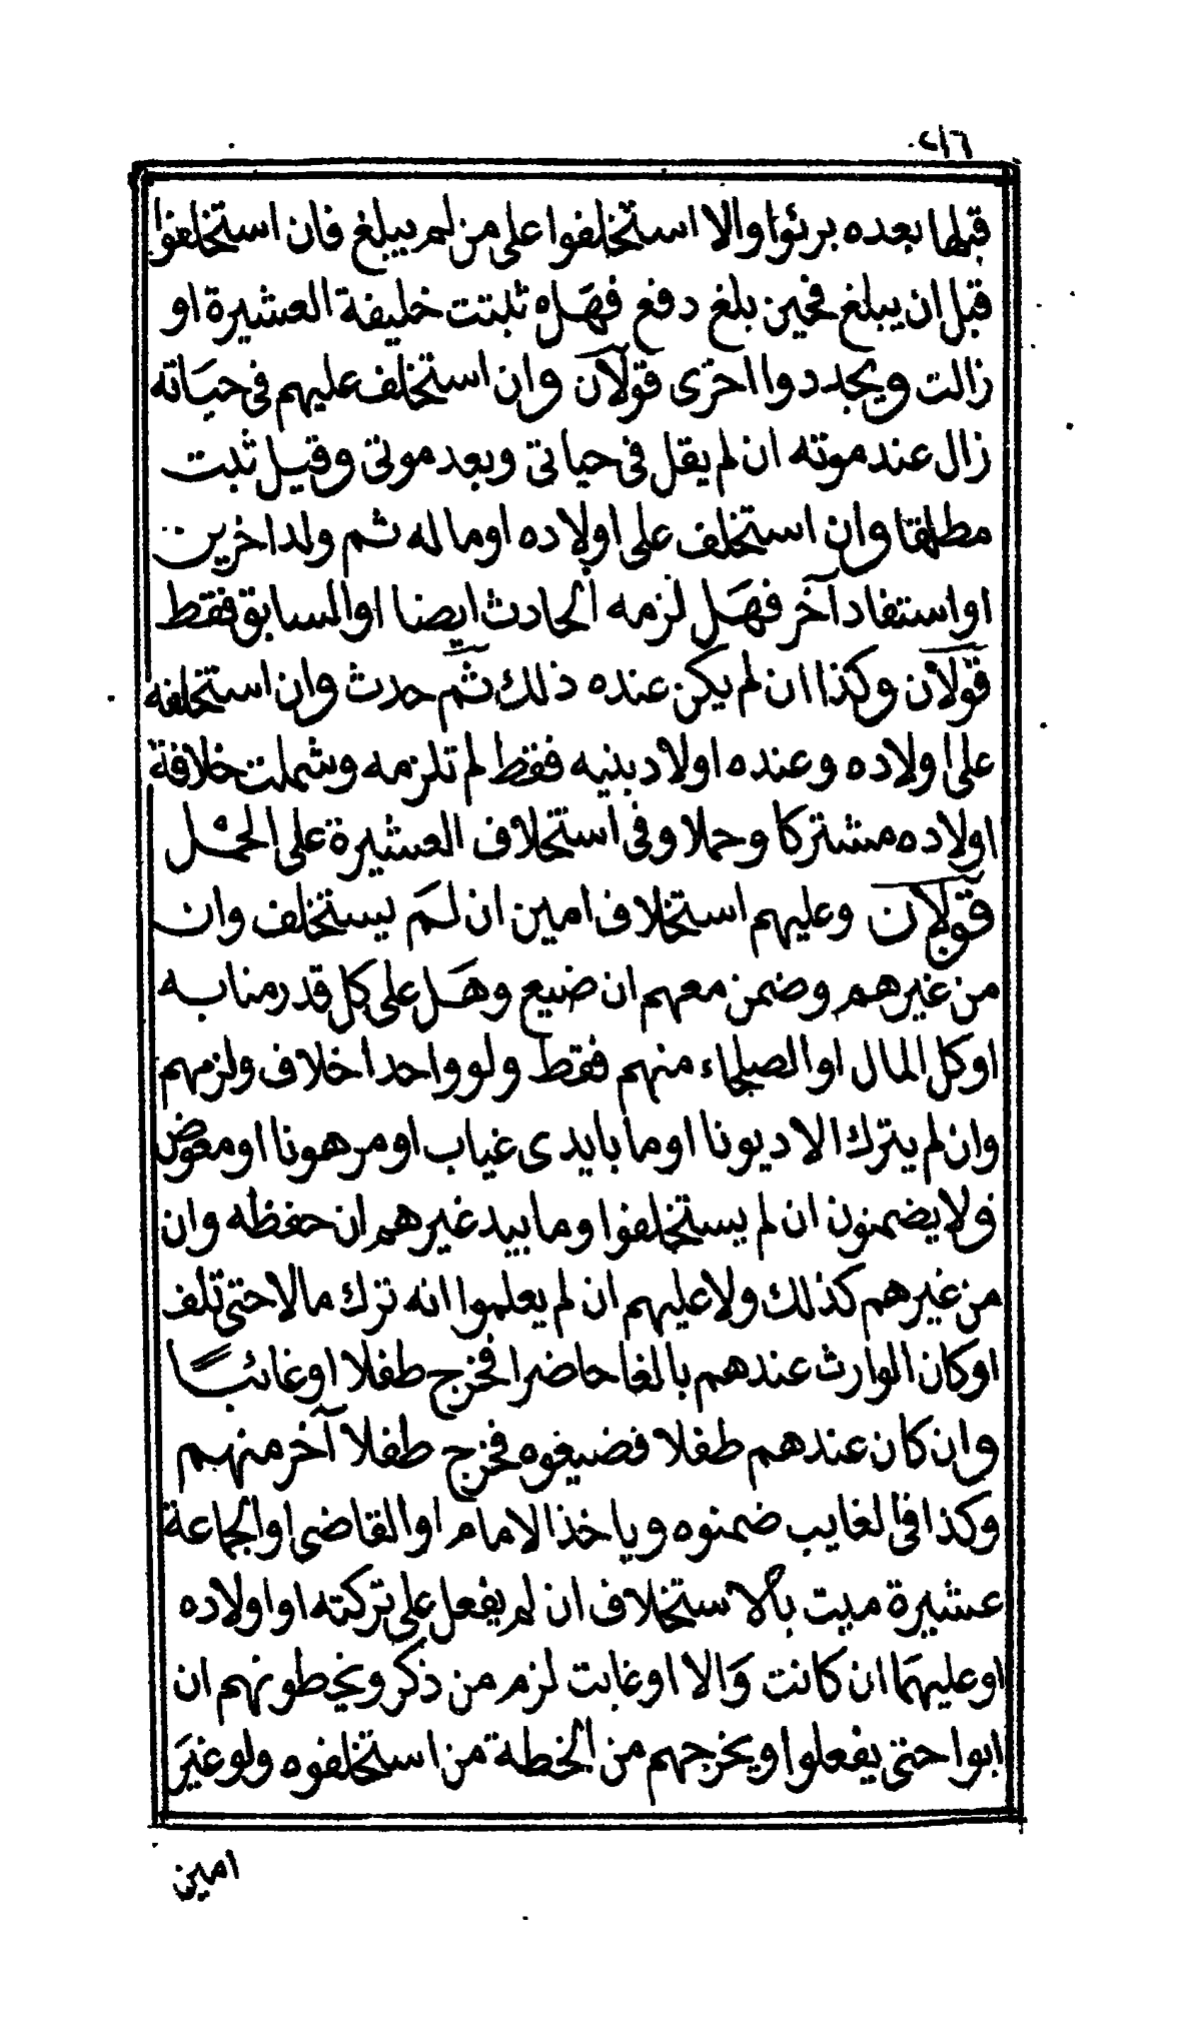 ٢١٦
قبلها بعده برئوا والا استخلفوا على من لم يبلغ فان استخلفوا
قبل ان يبلغ فحين بلغ دفع فهل ثبتت خليفة العشيرة او
زالت ويجددوا اخرى قولان وان استخلف عليهم فى حياته
زال عند موته ان لم يقل فى حياتى وبعد موتى وقيل ثبت
مطلقا وان استخلف على اولاده او ماله ثم ولد اخرين
او استفاد آخر فهل لزمه الحادث ايضا او السابق فقط
قولان وكذا ان لم يكن عنده ذلك ثم حدث وان استخلفه
على اولاده وعنده اولاد بنيه فقط لم تلزمه وشملت خلافة
اولاده مشتركا وحملا وفى استخلاف العشيرة على الحمل
قولان وعليهم استخلاف امين ان لم يستخلف وان
من غيرهم وضمن معهم ان ضيع وهل على كل قدر منابه
او كل المال او الصلحاء منهم فقط ولو واحدا خلاف ولزمهم
وان لم يترك الا ديونا او ما بايدى غياب او مرهونا او معوض
ولا يضمنون ان لم يستخلفوا وما بيد غيرهم ان حفظه وان
من غيرهم كذلك ولا عليهم ان لم يعلموا انه ترك مالا حتى تلف
او كان الوارث عندهم بالغا حاضرا فخرج طفلا او غائبا
وان كان عندهم طفلا فضيعوه فخرج طفلا آخر منهم
وكذا فى الغايب ضمنوه وياخذ الامام او القاضى او الجماعة
عشيرة ميت بالاستخلاف ان لم يفعل على تركته او اولاده
او عليهما ان كانت والا او غابت لزم من ذكر ويخطونهم ان
ابوا حتى يفعلوا ويخرجهم من الخطة من استخلفوه ولو غير
امين